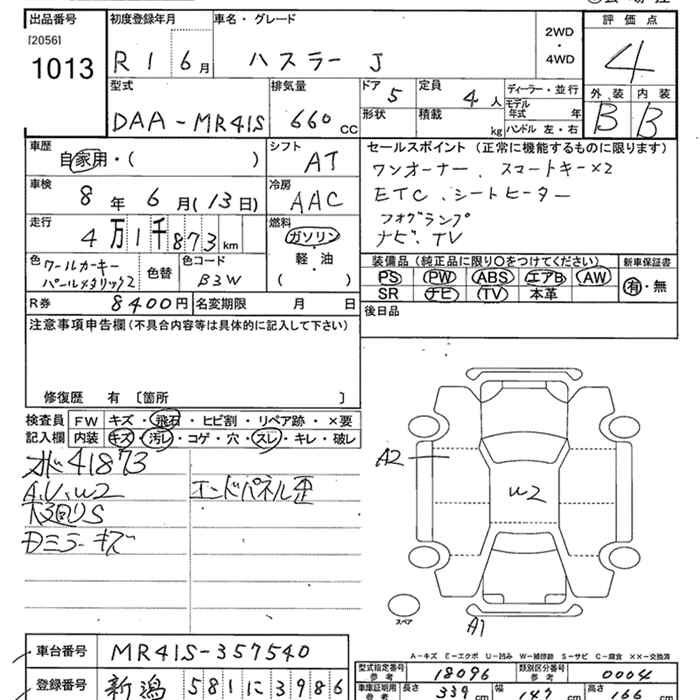 出品番号
[2056]
1013
初度登録年月
R 1 6 月
車名・グレード
ハスラー J
2WD
・
4WD
評価点
4
型式
DAA-MR41S
排気量
660 CC
ドア
5
形状
定員
4 人
積載
kg
ディーラー・並行
モデル年式 年
ハンドル 左・右
外装 内装
B B
車歴
自家用・( )
シフト
AT
車検
8 年 6 月(13日)
冷房
AAC
走行
4万1千873 km
燃料
ガソリン
・
軽・油
( )
色
クールカーキー
パールメタリック2
色替
色コード
B3W
R券
8400円
名変期限 月 日
セールスポイント(正常に機能するものに限ります)
ワンオーナー、スマートキー×2
ETC、シートヒーター
フォグランプ
ナビ、TV
装備品(純正品に限り○をつけてください)
PS PW ABS エアB AW
SR ナビ TV 本革
新車保証書
有・無
後日品
注意事項申告欄(不具合内容等は具体的に記入して下さい)
修復歴 有 [箇所 ]
検査員記入欄
FW キズ・飛石・ヒビ割・リペア跡・×要
内装 キズ・汚レ・コゲ・穴・スレ・キレ・破レ
41873
A、U、W2
エンドパネル歪
S
ミラーキズ
A2
W2
A1
スペア
A-キズ E-エクボ U-凹み W-補修跡 S-サビ C-腐食 ××-交換済
車台番号
MR41S-357540
登録番号
新潟 581 に 3986
型式指定番号
参考
18096
類別区分番号
参考
0004
車庫証明用
参考
長さ
339 cm
幅
147 cm
高さ
166 cm